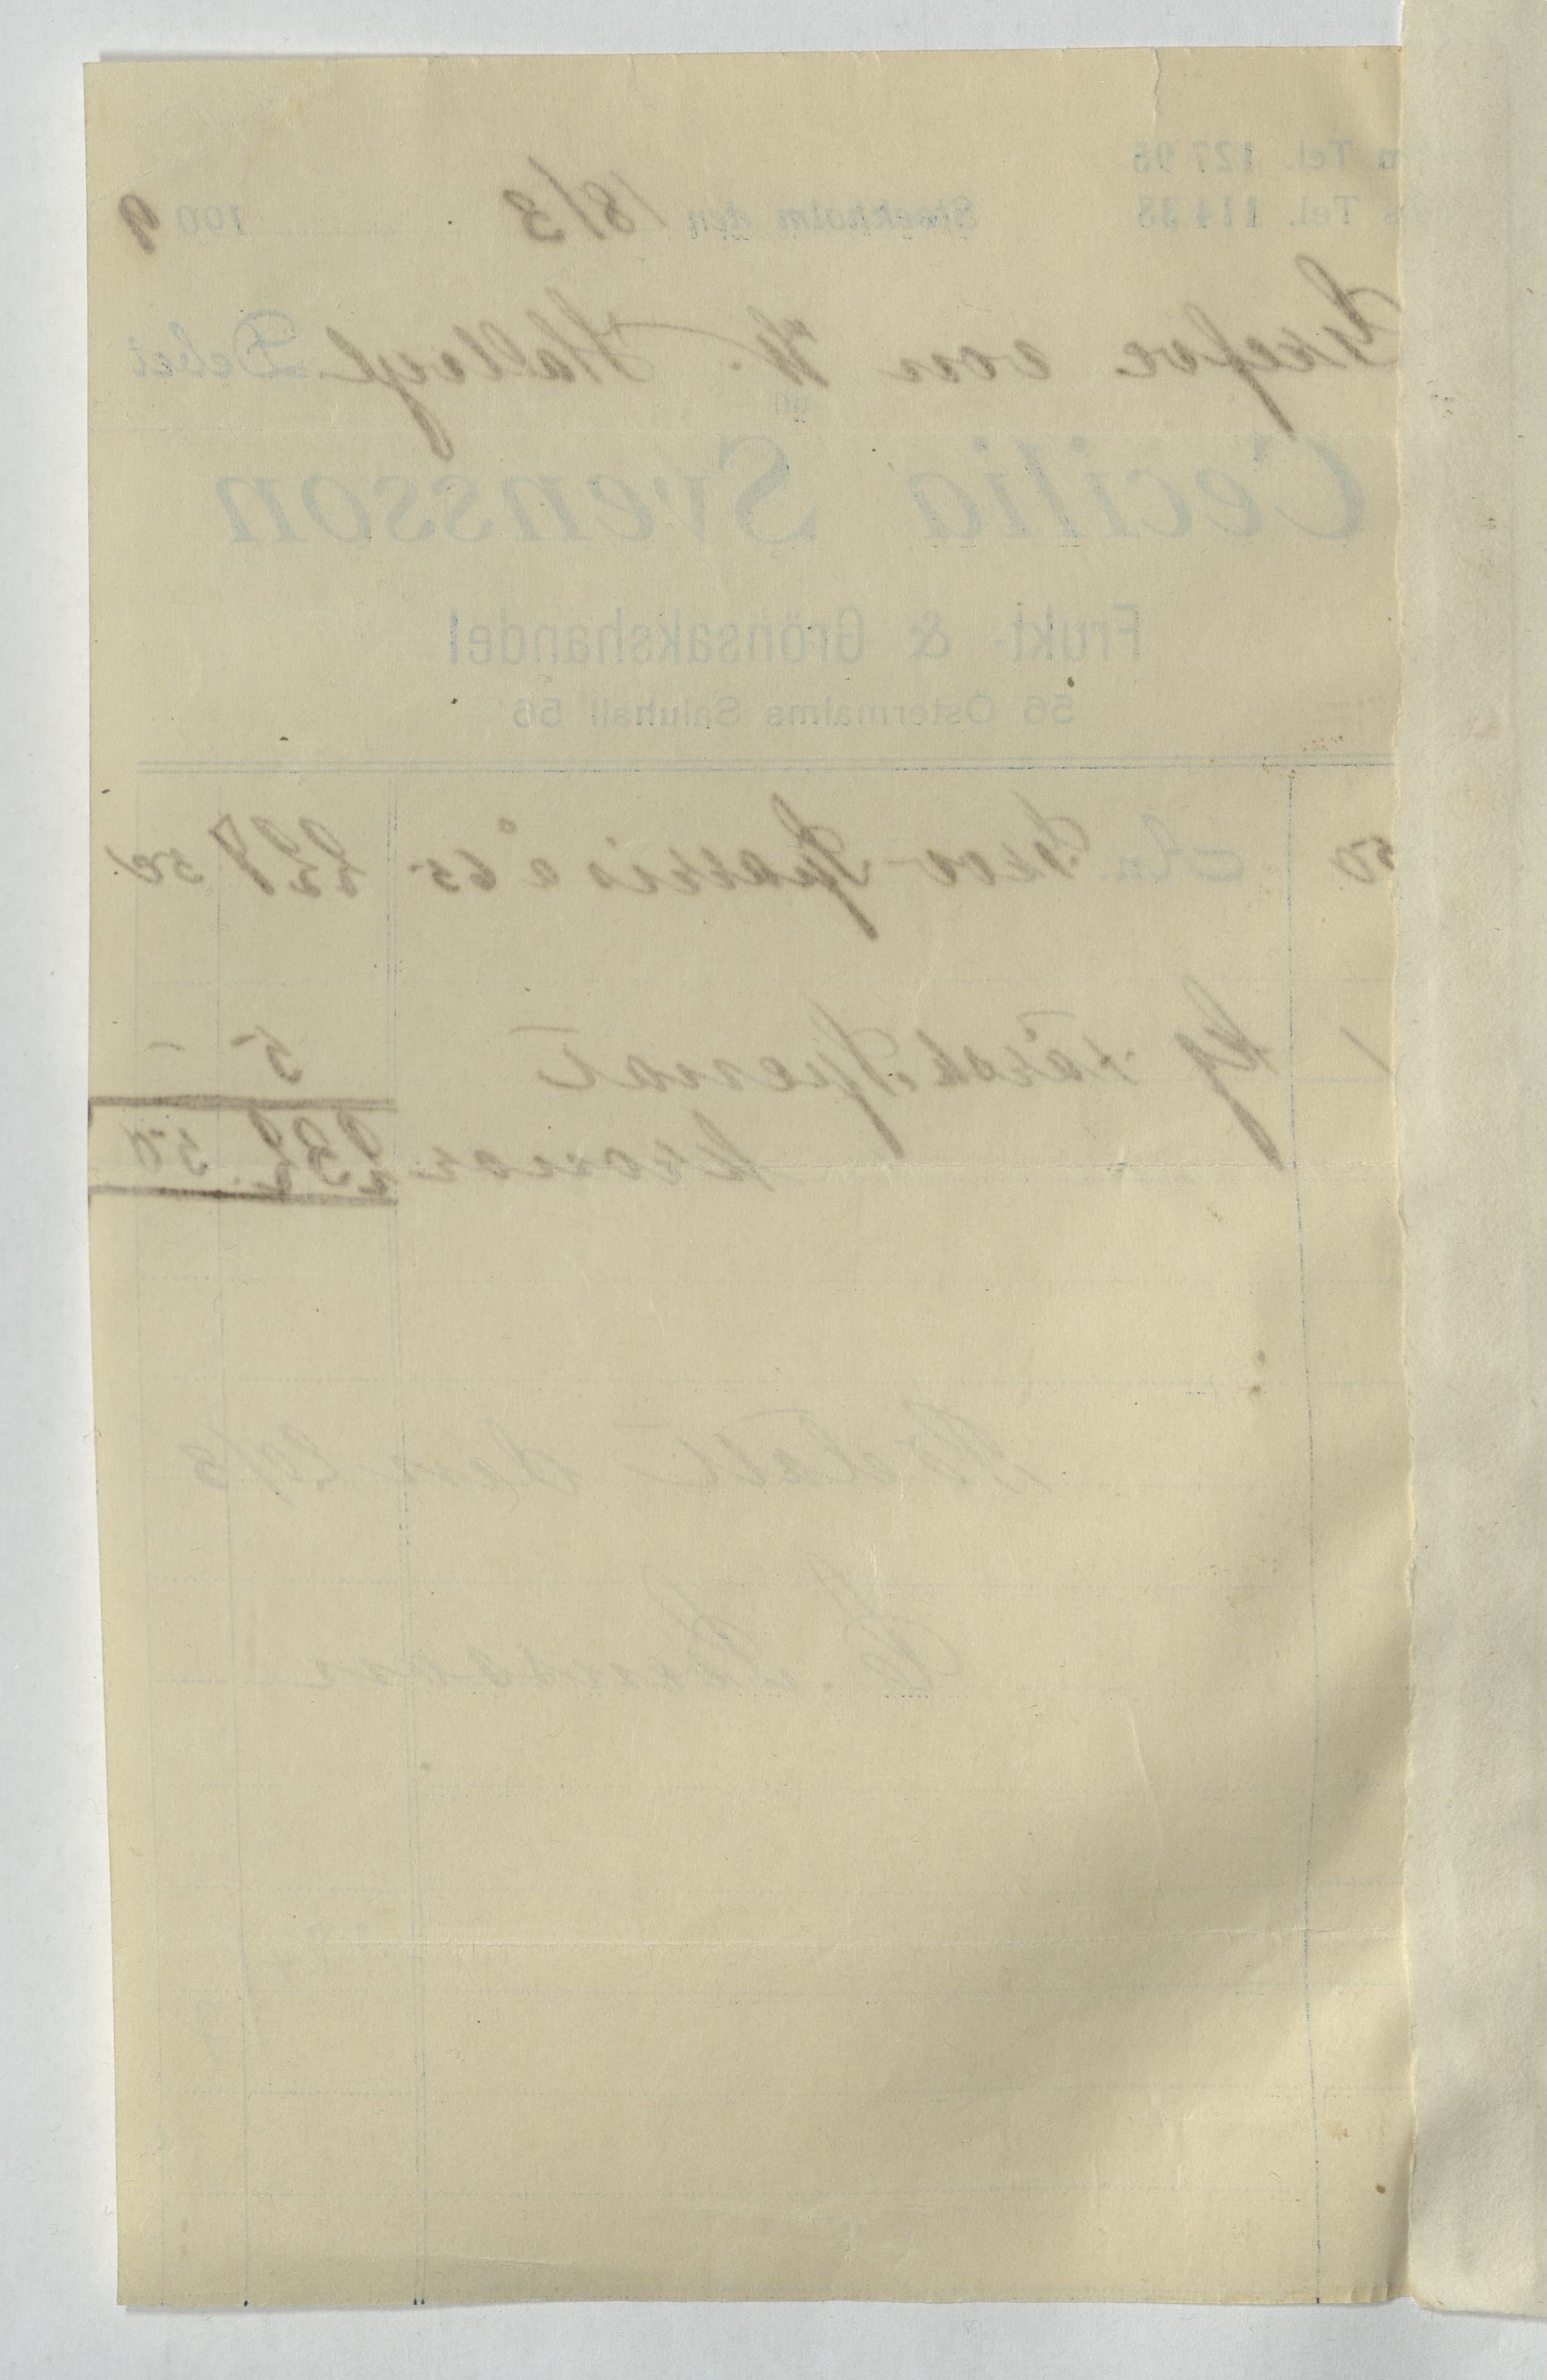 Tel. 127 96
Tel. 114 38 Stockholm den 18/3 1909
Grefve von W. Hallwyl Debet
till
Cecilia Svensson
Frukt- & Grönsakshandel
56 Östermalms Saluhall 56
50 Sparris à 65 227 50
1 kg färsk Spenat 5 -
Kronor 232 50
Betalt den 20/3
C. Svensson